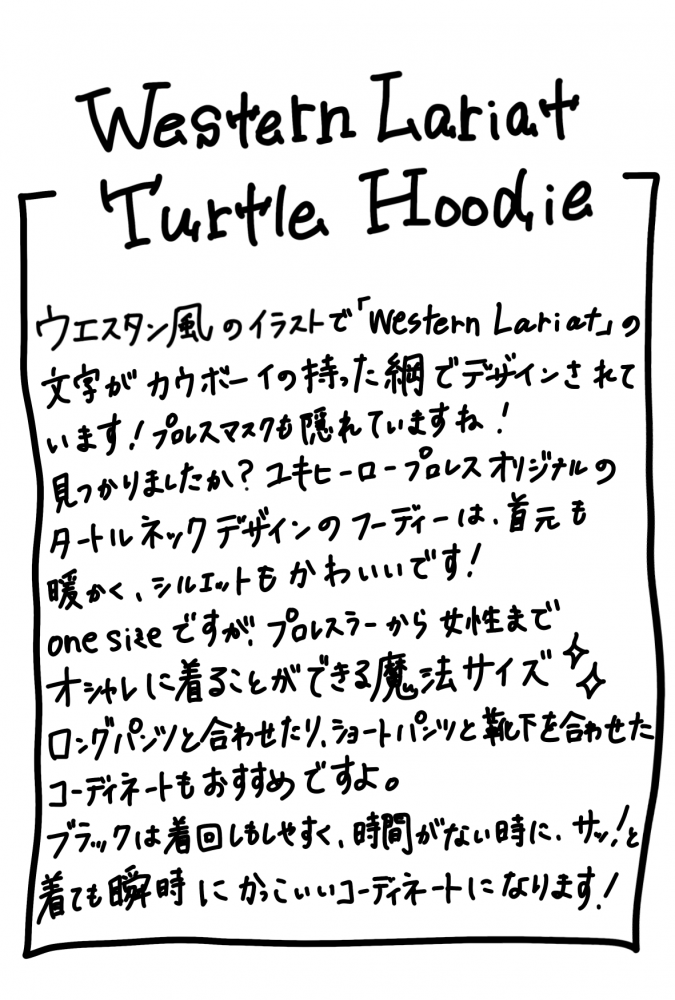 Western Lariat
Turtle Hoodie
ウエスタン風のイラストで「Western Lariat」の
文字がカウボーイの持った綱でデザインされて
います！プロレスマスクも隠れていますね！
見つかりましたか？ユキヒーロープロレスオリジナルの
タートルネックデザインのフーディーは、首元も
暖かく、シルエットもかわいいです！
one sizeですが、プロレスラーから女性まで
オシャレに着ることができる魔法サイズ
ロングパンツと合わせたり、ショートパンツと靴下を合わせた
コーディネートもおすすめですよ。
ブラックは着回しもしやすく、時間がない時に、サッ！と
着ても瞬時にかっこいいコーディネートになります！